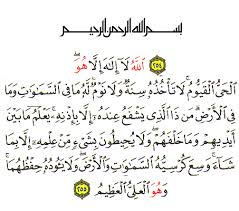 بسم الله الرحمن الرحيم
٢٥٤ اللَّهُ لَا إِلَٰهَ إِلَّا هُوَ
الْحَيُّ الْقَيُّومُ ۚ لَا تَأْخُذُهُ سِنَةٌ وَلَا نَوْمٌ ۚ لَهُ مَا فِي السَّمَٰوَٰتِ وَمَا
فِي الْأَرْضِ ۗ مَنْ ذَا الَّذِي يَشْفَعُ عِنْدَهُ إِلَّا بِإِذْنِهِ ۚ يَعْلَمُ مَا بَيْنَ
أَيْدِيهِمْ وَمَا خَلْفَهُمْ ۖ وَلَا يُحِيطُونَ بِشَيْءٍ مِنْ عِلْمِهِ إِلَّا بِمَا
شَاءَ ۚ وَسِعَ كُرْسِيُّهُ السَّمَٰوَٰتِ وَالْأَرْضَ ۖ وَلَا يَئُودُهُ حِفْظُهُمَا ۚ
وَهُوَ الْعَلِيُّ الْعَظِيمُ ٢٥٥